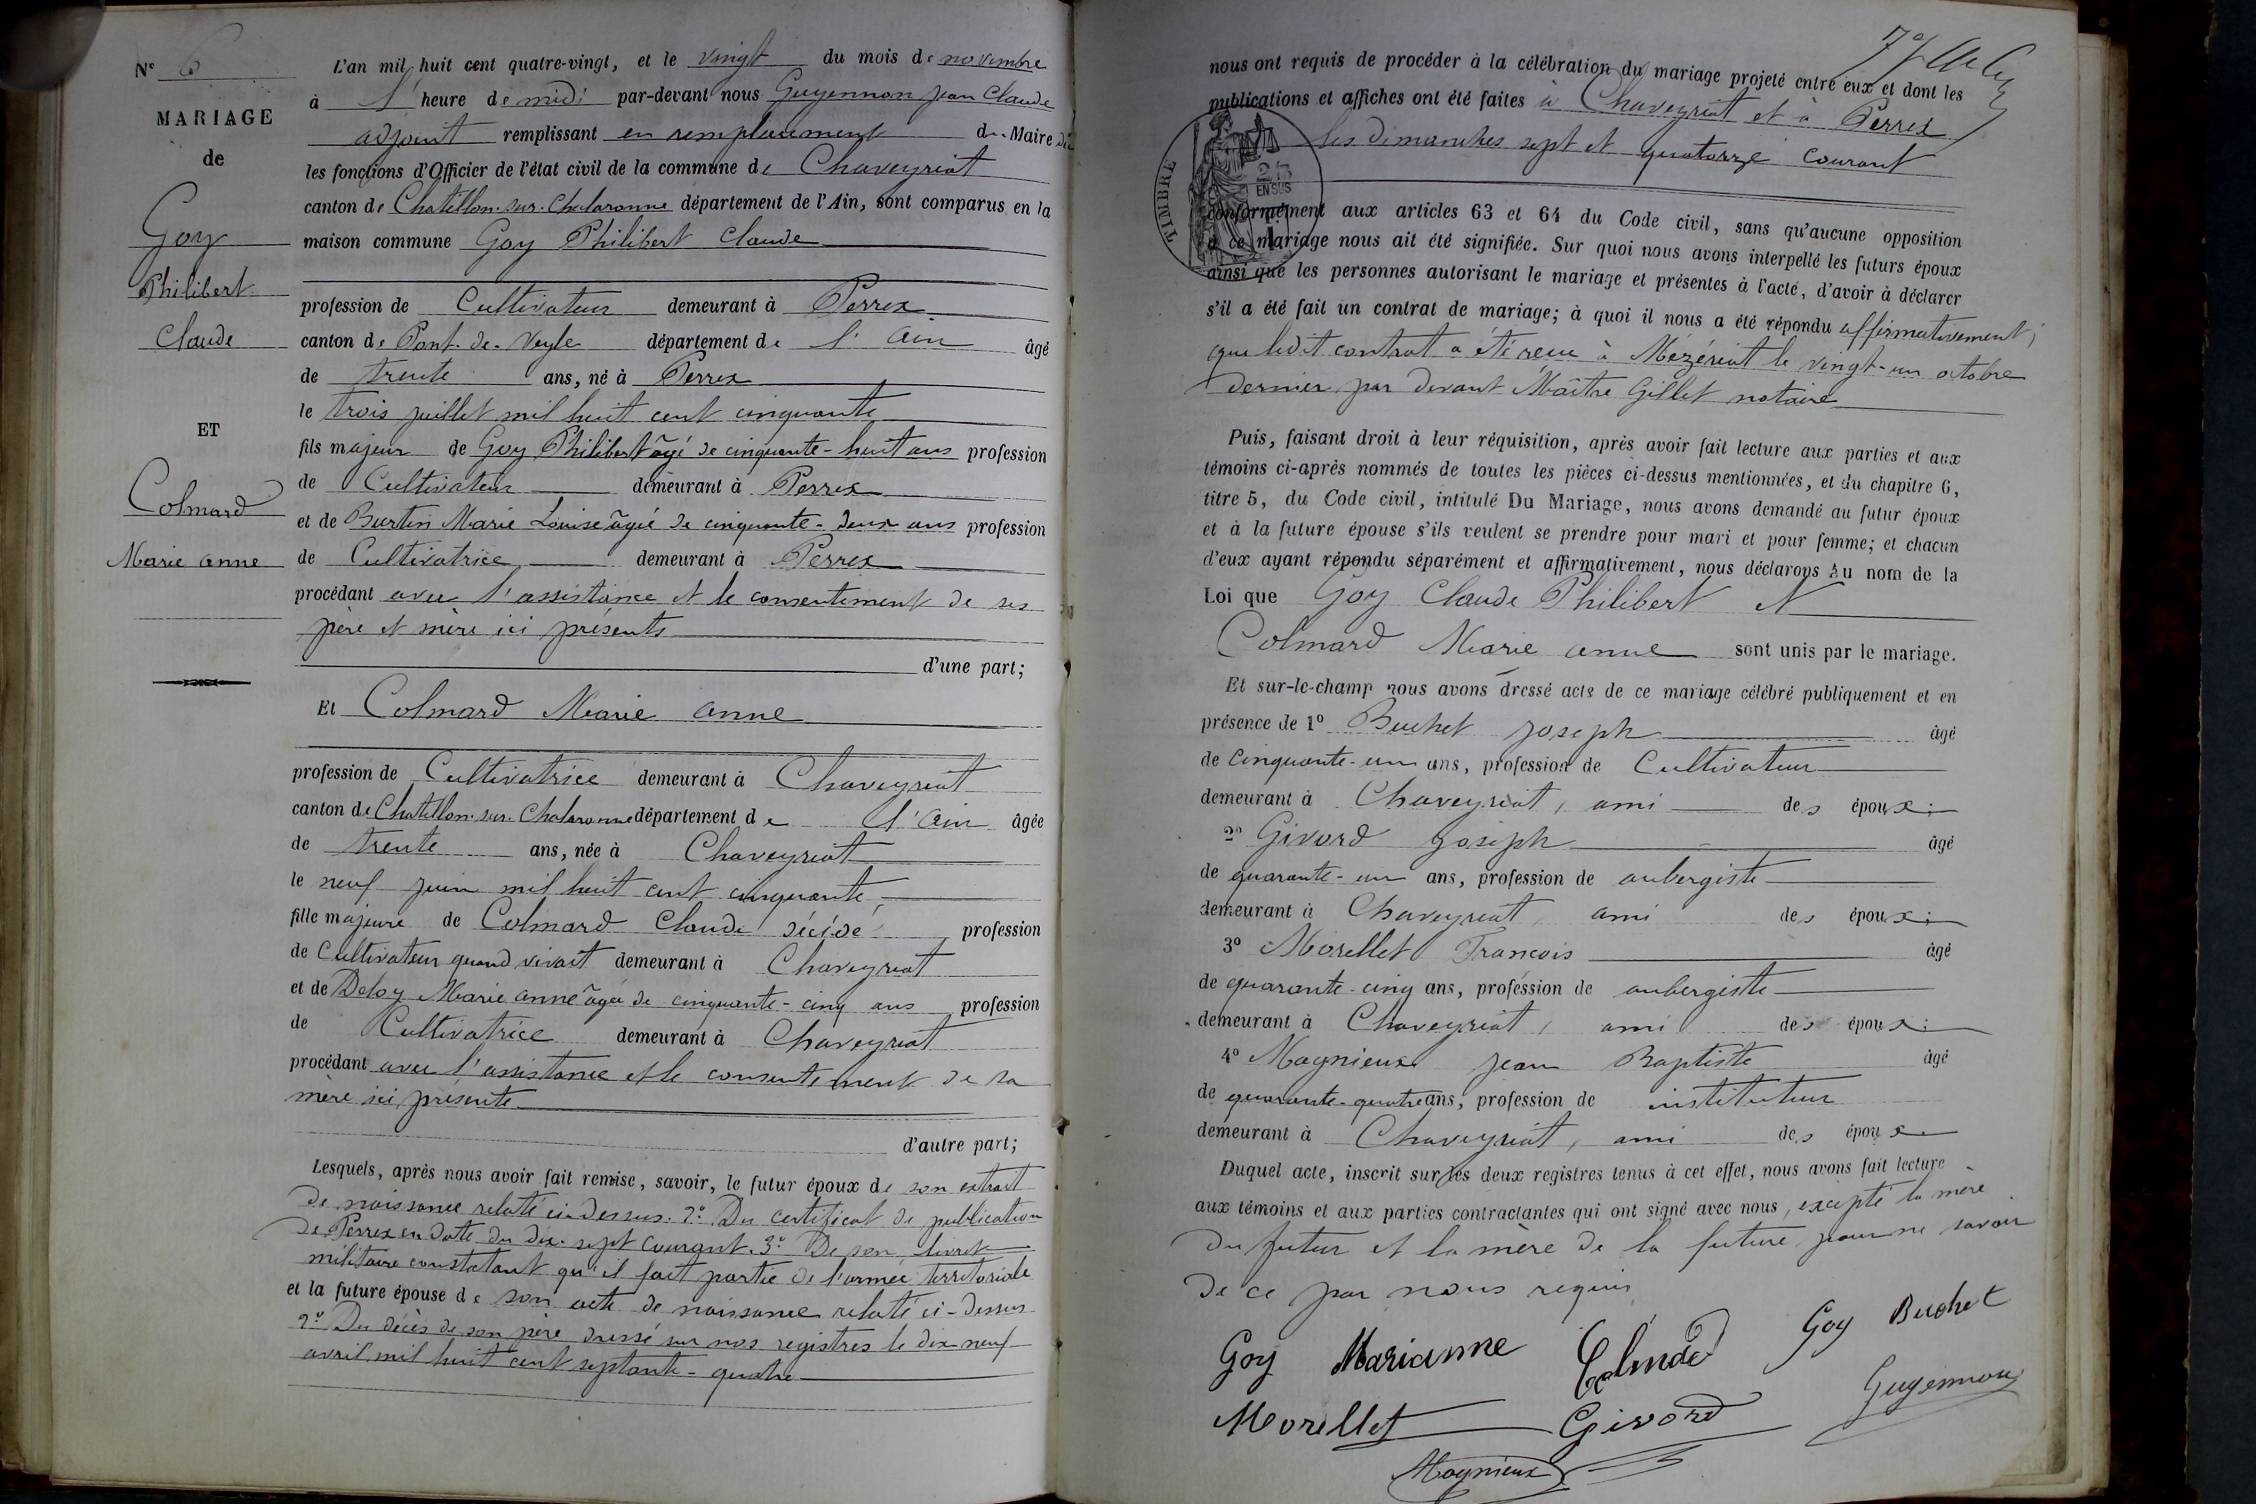 N° 6
MARIAGE
de
Goy
Philibert
Claude
ET
Colmard
Marie anne
L'an mil huit cent quatre-vingt, et le vingt du mois de novembre
à l' heure de midi par-devant nous Guyennon jean Claude
adjoint remplissant en remplacement du Maire
les fonctions d'Officier de l'état civil de la commune de Chaveyriat
canton de Chatillon-sur-Chalaronne département de l'Ain, sont comparus en la
maison commune Goy Philibert Claude
profession de Cultivateur demeurant à Perrex
canton de Pont-de-Veyle département de l'ain âgé
de trente ans, né à Perrex
le trois juillet mil huit cent cinquante
fils majeur de Goy Philibert âgé de cinquante-huit ans profession
de Cultivateur demeurant à Perrex
et de Burtin Marie Louise âgée de cinquante-deux ans profession
de Cultivatrice demeurant à Perrex
procédant avec l'assistance et le consentement de ses
père et mère ici présents
d'une part;
Et Colmard Marie anne
profession de Cultivatrice demeurant à Chaveyriat
canton de Chatillon-sur-Chalaronne département de l'ain âgée
de trente ans, née à Chaveyriat
le neuf juin mil huit cent cinquante,
fille majeure de Colmard Claude décédé profession
de Cultivateur quand vivait demeurant à Chaveyriat
et de Deloy Marie anne âgée de cinquante-cinq ans profession
de Cultivatrice demeurant à Chaveyriat
procédant avec l'assistance et le consentement de sa
mère ici présente
d'autre part;
Lesquels, après nous avoir fait remise, savoir, le futur époux de son extrait
de naissance relaté ci-dessus. 2° Du certificat de publication
de Perrex en date du dix-sept courant. 3° De son livret
militaire constatant qu'il fait partie de l'armée territoriale
et la future épouse de son acte de naissance relaté ci-dessus
2° Du décès de son père dressé sur nos registres le dix-neuf
avril mil huit cent septante-quatre
nous ont requis de procéder à la célébration du mariage projeté entre eux et dont les
publications et affiches ont été faites à Chaveyriat et à Perrex
les dimanches sept et quatorze courant
TIMBRE
25
EN SUS
conformément aux articles 63 et 64 du Code civil, sans qu'aucune opposition
à ce mariage nous ait été signifiée. Sur quoi nous avons interpellé les futurs époux
ainsi que les personnes autorisant le mariage et présentes à l'acte, d'avoir à déclarer
s'il a été fait un contrat de mariage; à quoi il nous a été répondu affirmativement;
que ledit contrat a été reçu à Mézériat le vingt-un octobre
dernier par devant Maître Gillet notaire
Puis, faisant droit à leur réquisition, après avoir fait lecture aux parties et aux
témoins ci-après nommés de toutes les pièces ci-dessus mentionnées, et du chapitre 6,
titre 5, du Code civil, intitulé Du Mariage, nous avons demandé au futur époux
et à la future épouse s'ils veulent se prendre pour mari et pour femme; et chacun
d'eux ayant répondu séparément et affirmativement, nous déclarons au nom de la
Loi que Goy Claude Philibert et
Colmard Marie anne sont unis par le mariage.
Et sur-le-champ nous avons dressé acte de ce mariage célébré publiquement et en
présence de 1° Buchet joseph âgé
de cinquante-un ans, profession de Cultivateur
demeurant à Chaveyriat, ami des époux;
2° Givord joseph âgé
de quarante-un ans, profession de aubergiste
demeurant à Chaveyriat, ami des époux;
3° Morellet Francois âgé
de quarante-cinq ans, profession de aubergiste
demeurant à Chaveyriat, ami des époux;
4° Magnieux jean Baptiste âgé
de quarante-quatre ans, profession de instituteur
demeurant à Chaveyriat, ami des époux
Duquel acte, inscrit sur les deux registres tenus à cet effet, nous avons fait lecture
aux témoins et aux parties contractantes qui ont signé avec nous, excepté la mère
du futur et la mère de la future pour ne savoir
de ce par nous requis
Goy Marianne Colmard Goy Buchet
Morellet Givord Guyennon
Magnieux